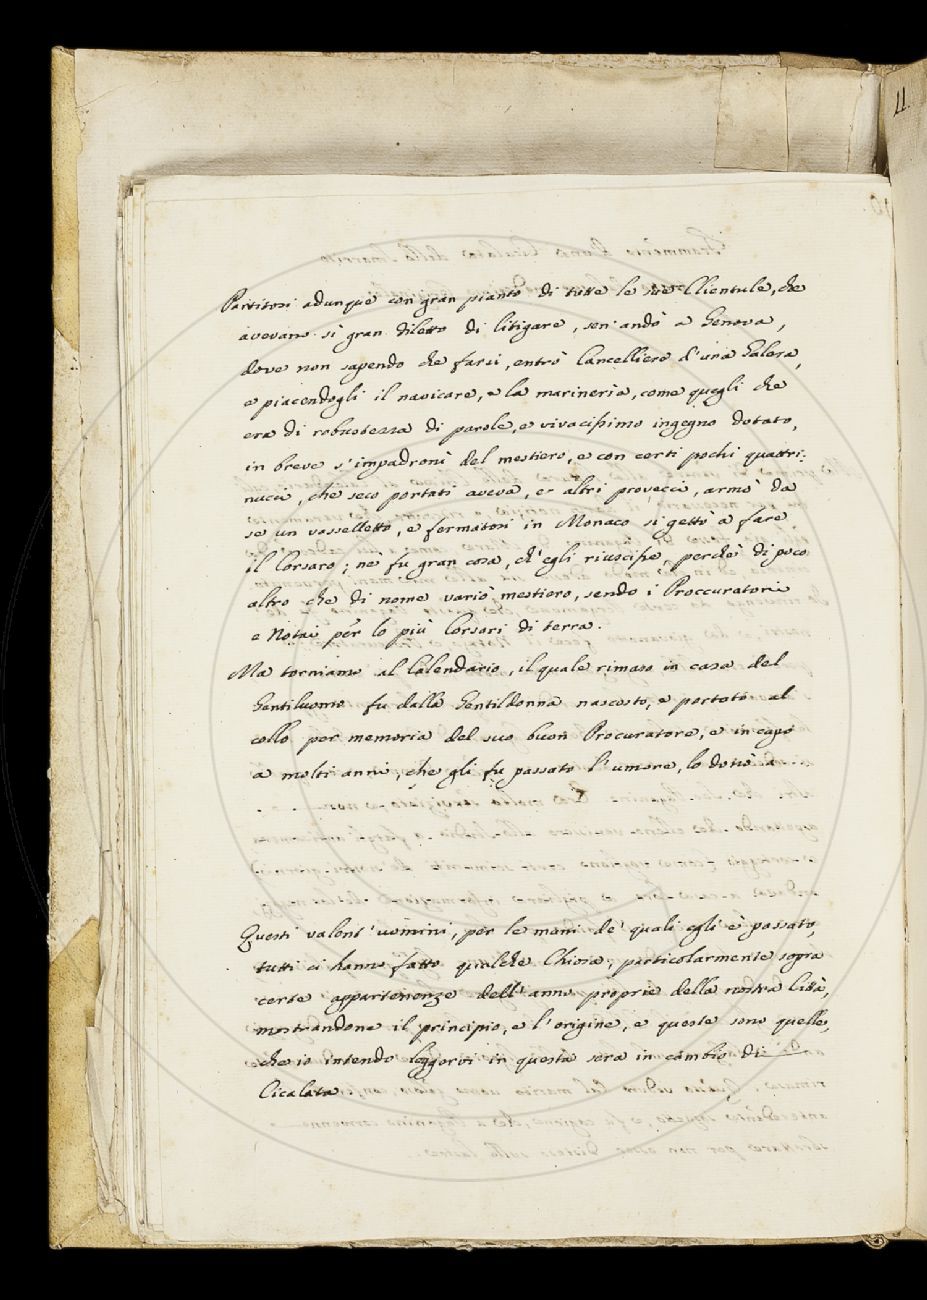 11.
Partitosi adunque con gran pianto di tutte le sue Clientule, che
avevano sì gran diletto di litigare, sen'andò a Genova,
dove non sapendo che farsi, entrò Cancelliere d'una Galera,
e piacendogli il navicare, e la marineria, come quegli che
era di robustezza di parole, e vivacissimo ingegno dotato,
in breve s'impadronì del mestiero, e con certi pochi quattri:
nucci, che seco portati aveva, et altri provecci, armò da
se un vasselletto, e fermatosi in Monaco si gettò a fare
il Corsaro; nè fu gran cosa, ch'egli riuscisse, perchè di poco
altro che di nome variò mestiero, sendo i Proccuratori
e Notai per lo più Corsari di terra.
Ma torniamo al Calendario, il quale rimaso in casa del
Gentiluomo fu dalla Gentildonna nascosto, e portato al
collo per memoria del suo buon Procuratore, e in capo
a molti anni, che gli fu passato l'umore, lo donò a ...
Questi valent'uomini, per le mani de' quali egli è passato,
tutti ci hanno fatto qualche Chiosa, particolarmente sopra
certe appartenenze dell'anno proprie della nostra Città,
mostrandone il principio, e l'origine, e queste sono quelle,
che io intendo leggervi in questa sera in cambio di
Cicalata